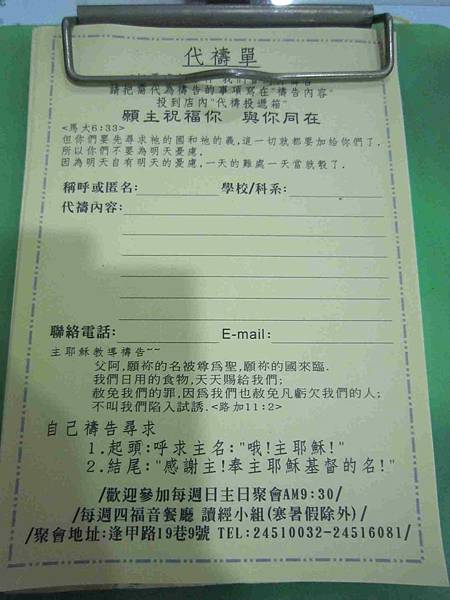 代禱單
請把需代為禱告的事項寫在"禱告內容"
投到店內"代禱投遞箱"
願主祝福你 與你同在
<馬太6:33>
但你們要先尋求祂的國和祂的義,這一切就都要加給你們了.
所以你們不要為明天憂慮.
因為明天自有明天的憂慮,一天的難處一天當就彀了.
稱呼或匿名: 學校/科系:
代禱內容:
聯絡電話: E-mail:
主耶穌教導禱告~~
父阿,願祢的名被尊爲聖,願祢的國來臨.
我們日用的食物,天天賜給我們;
赦免我們的罪,因爲我們也赦免凡虧欠我們的人;
不叫我們陷入試誘.<路加11:2>
自己禱告尋求
1.起頭:呼求主名:"哦!主耶穌!"
2.結尾:"感謝主!奉主耶穌基督的名!"
/歡迎參加每週日主日聚會AM9:30/
/每週四福音餐廳 讀經小組(寒暑假除外)/
/聚會地址:逢甲路19巷9號 TEL:24510032-24516081/